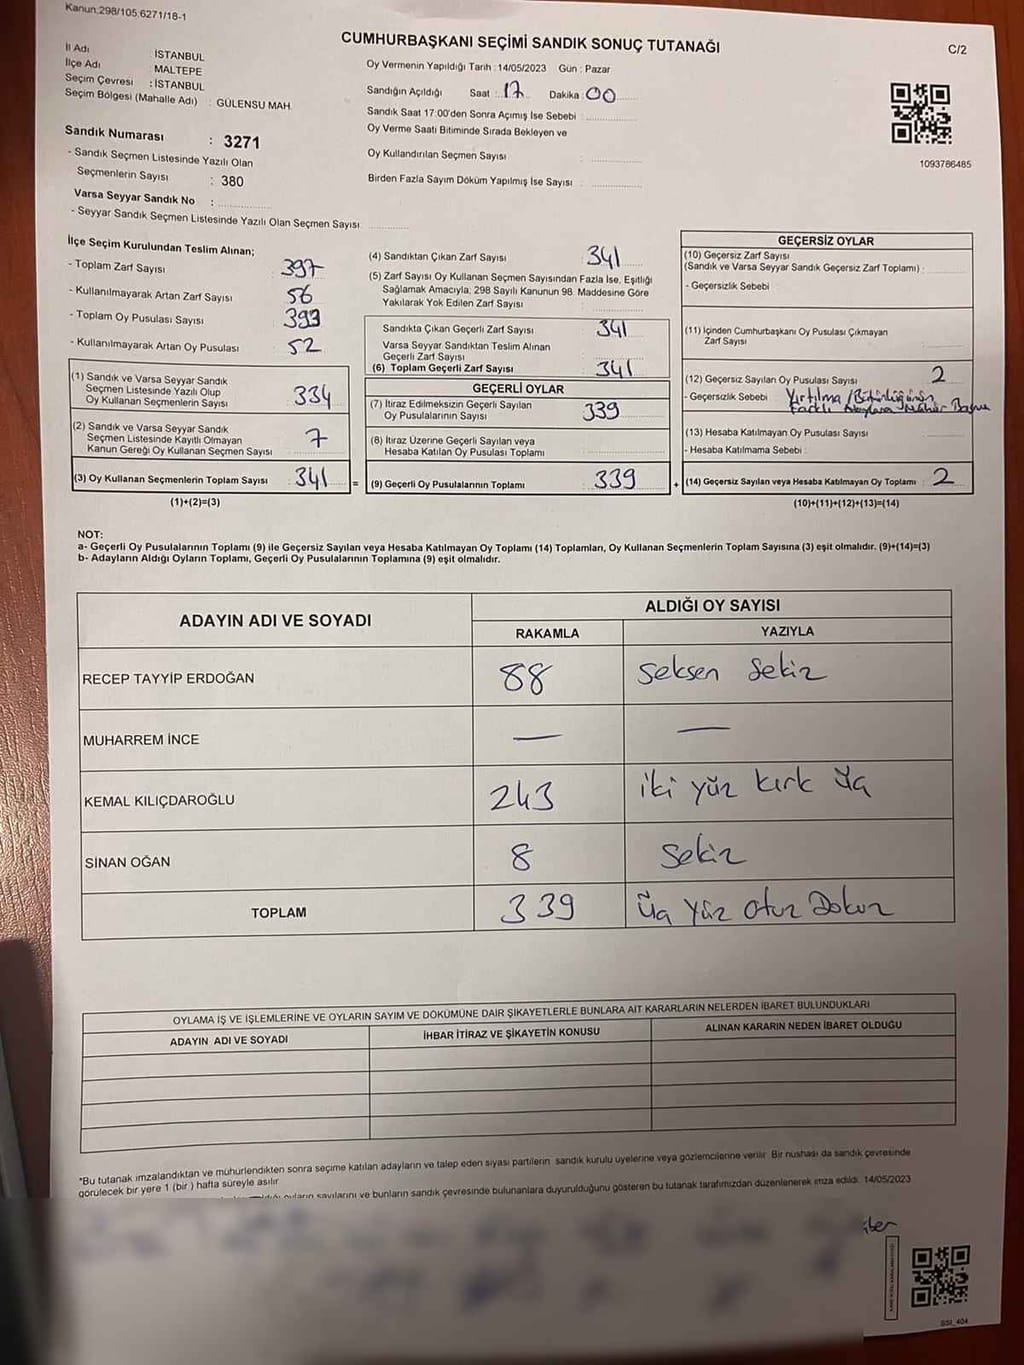 Kanun;298/105,6271/18-1
C/2
CUMHURBAŞKANI SEÇİMİ SANDIK SONUÇ TUTANAĞI
İl Adı : İSTANBUL
İlçe Adı : MALTEPE
Seçim Çevresi : İSTANBUL
Seçim Bölgesi (Mahalle Adı) : GÜLENSU MAH.
Sandık Numarası : 3271
- Sandık Seçmen Listesinde Yazılı Olan
Seçmenlerin Sayısı : 380
Varsa Seyyar Sandık No :
- Seyyar Sandık Seçmen Listesinde Yazılı Olan Seçmen Sayısı
Oy Vermenin Yapıldığı Tarih :14/05/2023 Gün : Pazar
Sandığın Açıldığı Saat : 17 Dakika : 00
Sandık Saat 17:00'den Sonra Açımış İse Sebebi :
Oy Verme Saati Bitiminde Sırada Bekleyen ve
Oy Kullandırılan Seçmen Sayısı :
Birden Fazla Sayım Döküm Yapılmış İse Sayısı :
1093786485
İlçe Seçim Kurulundan Teslim Alınan;
- Toplam Zarf Sayısı 397
- Kullanılmayarak Artan Zarf Sayısı 56
- Toplam Oy Pusulası Sayısı 393
- Kullanılmayarak Artan Oy Pusulası 52
(1) Sandık ve Varsa Seyyar Sandık
Seçmen Listesinde Yazılı Olup
Oy Kullanan Seçmenlerin Sayısı 334
(2) Sandık ve Varsa Seyyar Sandık
Seçmen Listesinde Kayıtlı Olmayan
Kanun Gereği Oy Kullanan Seçmen Sayısı 7
(3) Oy Kullanan Seçmenlerin Toplam Sayısı 341
(1)+(2)=(3)
(4) Sandıktan Çıkan Zarf Sayısı 341
(5) Zarf Sayısı Oy Kullanan Seçmen Sayısından Fazla İse, Eşitliği
Sağlamak Amacıyla; 298 Sayılı Kanunun 98. Maddesine Göre
Yakılarak Yok Edilen Zarf Sayısı
Sandıkta Çıkan Geçerli Zarf Sayısı 341
Varsa Seyyar Sandıktan Teslim Alınan
Geçerli Zarf Sayısı
(6) Toplam Geçerli Zarf Sayısı 341
GEÇERLİ OYLAR
(7) İtiraz Edilmeksizin Geçerli Sayılan
Oy Pusulalarının Sayısı 339
(8) İtiraz Üzerine Geçerli Sayılan veya
Hesaba Katılan Oy Pusulası Toplamı
= (9) Geçerli Oy Pusulalarının Toplamı 339
GEÇERSİZ OYLAR
(10) Geçersiz Zarf Sayısı
(Sandık ve Varsa Seyyar Sandık Geçersiz Zarf Toplamı) :
- Geçersizlik Sebebi
(11) İçinden Cumhurbaşkanı Oy Pusulası Çıkmayan
Zarf Sayısı
(12) Geçersiz Sayılan Oy Pusulası Sayısı 2
- Geçersizlik Sebebi Yırtılma / Bütünlüğünün
Farklı Adaylara Mühür Basma
(13) Hesaba Katılmayan Oy Pusulası Sayısı
- Hesaba Katılmama Sebebi
+ (14) Geçersiz Sayılan veya Hesaba Katılmayan Oy Toplamı 2
(10)+(11)+(12)+(13)=(14)
NOT:
a- Geçerli Oy Pusulalarının Toplamı (9) ile Geçersiz Sayılan veya Hesaba Katılmayan Oy Toplamı (14) Toplamları, Oy Kullanan Seçmenlerin Toplam Sayısına (3) eşit olmalıdır. (9)+(14)=(3)
b- Adayların Aldığı Oyların Toplamı, Geçerli Oy Pusulalarının Toplamına (9) eşit olmalıdır.
ADAYIN ADI VE SOYADI ALDIĞI OY SAYISI
RAKAMLA YAZIYLA
RECEP TAYYİP ERDOĞAN 88 Seksen Sekiz
MUHARREM İNCE — —
KEMAL KILIÇDAROĞLU 243 iki yüz kırk üç
SİNAN OĞAN 8 Sekiz
TOPLAM 339 Üç Yüz Otuz Dokuz
OYLAMA İŞ VE İŞLEMLERİNE VE OYLARIN SAYIM VE DÖKÜMÜNE DAİR ŞİKAYETLERLE BUNLARA AİT KARARLARIN NELERDEN İBARET BULUNDUKLARI
ADAYIN ADI VE SOYADI İHBAR İTİRAZ VE ŞİKAYETİN KONUSU ALINAN KARARIN NEDEN İBARET OLDUĞU
*Bu tutanak imzalandıktan ve mühürlendikten sonra seçime katılan adayların ve talep eden siyasi partilerin sandık kurulu üyelerine veya gözlemcilerine verilir. Bir nüshası da sandık çevresinde
görülecek bir yere 1 (bir ) hafta süreyle asılır.
oyların sayılarını ve bunların sandık çevresinde bulunanlara duyurulduğunu gösteren bu tutanak tarafımızdan düzenlenerek imza edildi. 14/05/2023
SSI_404